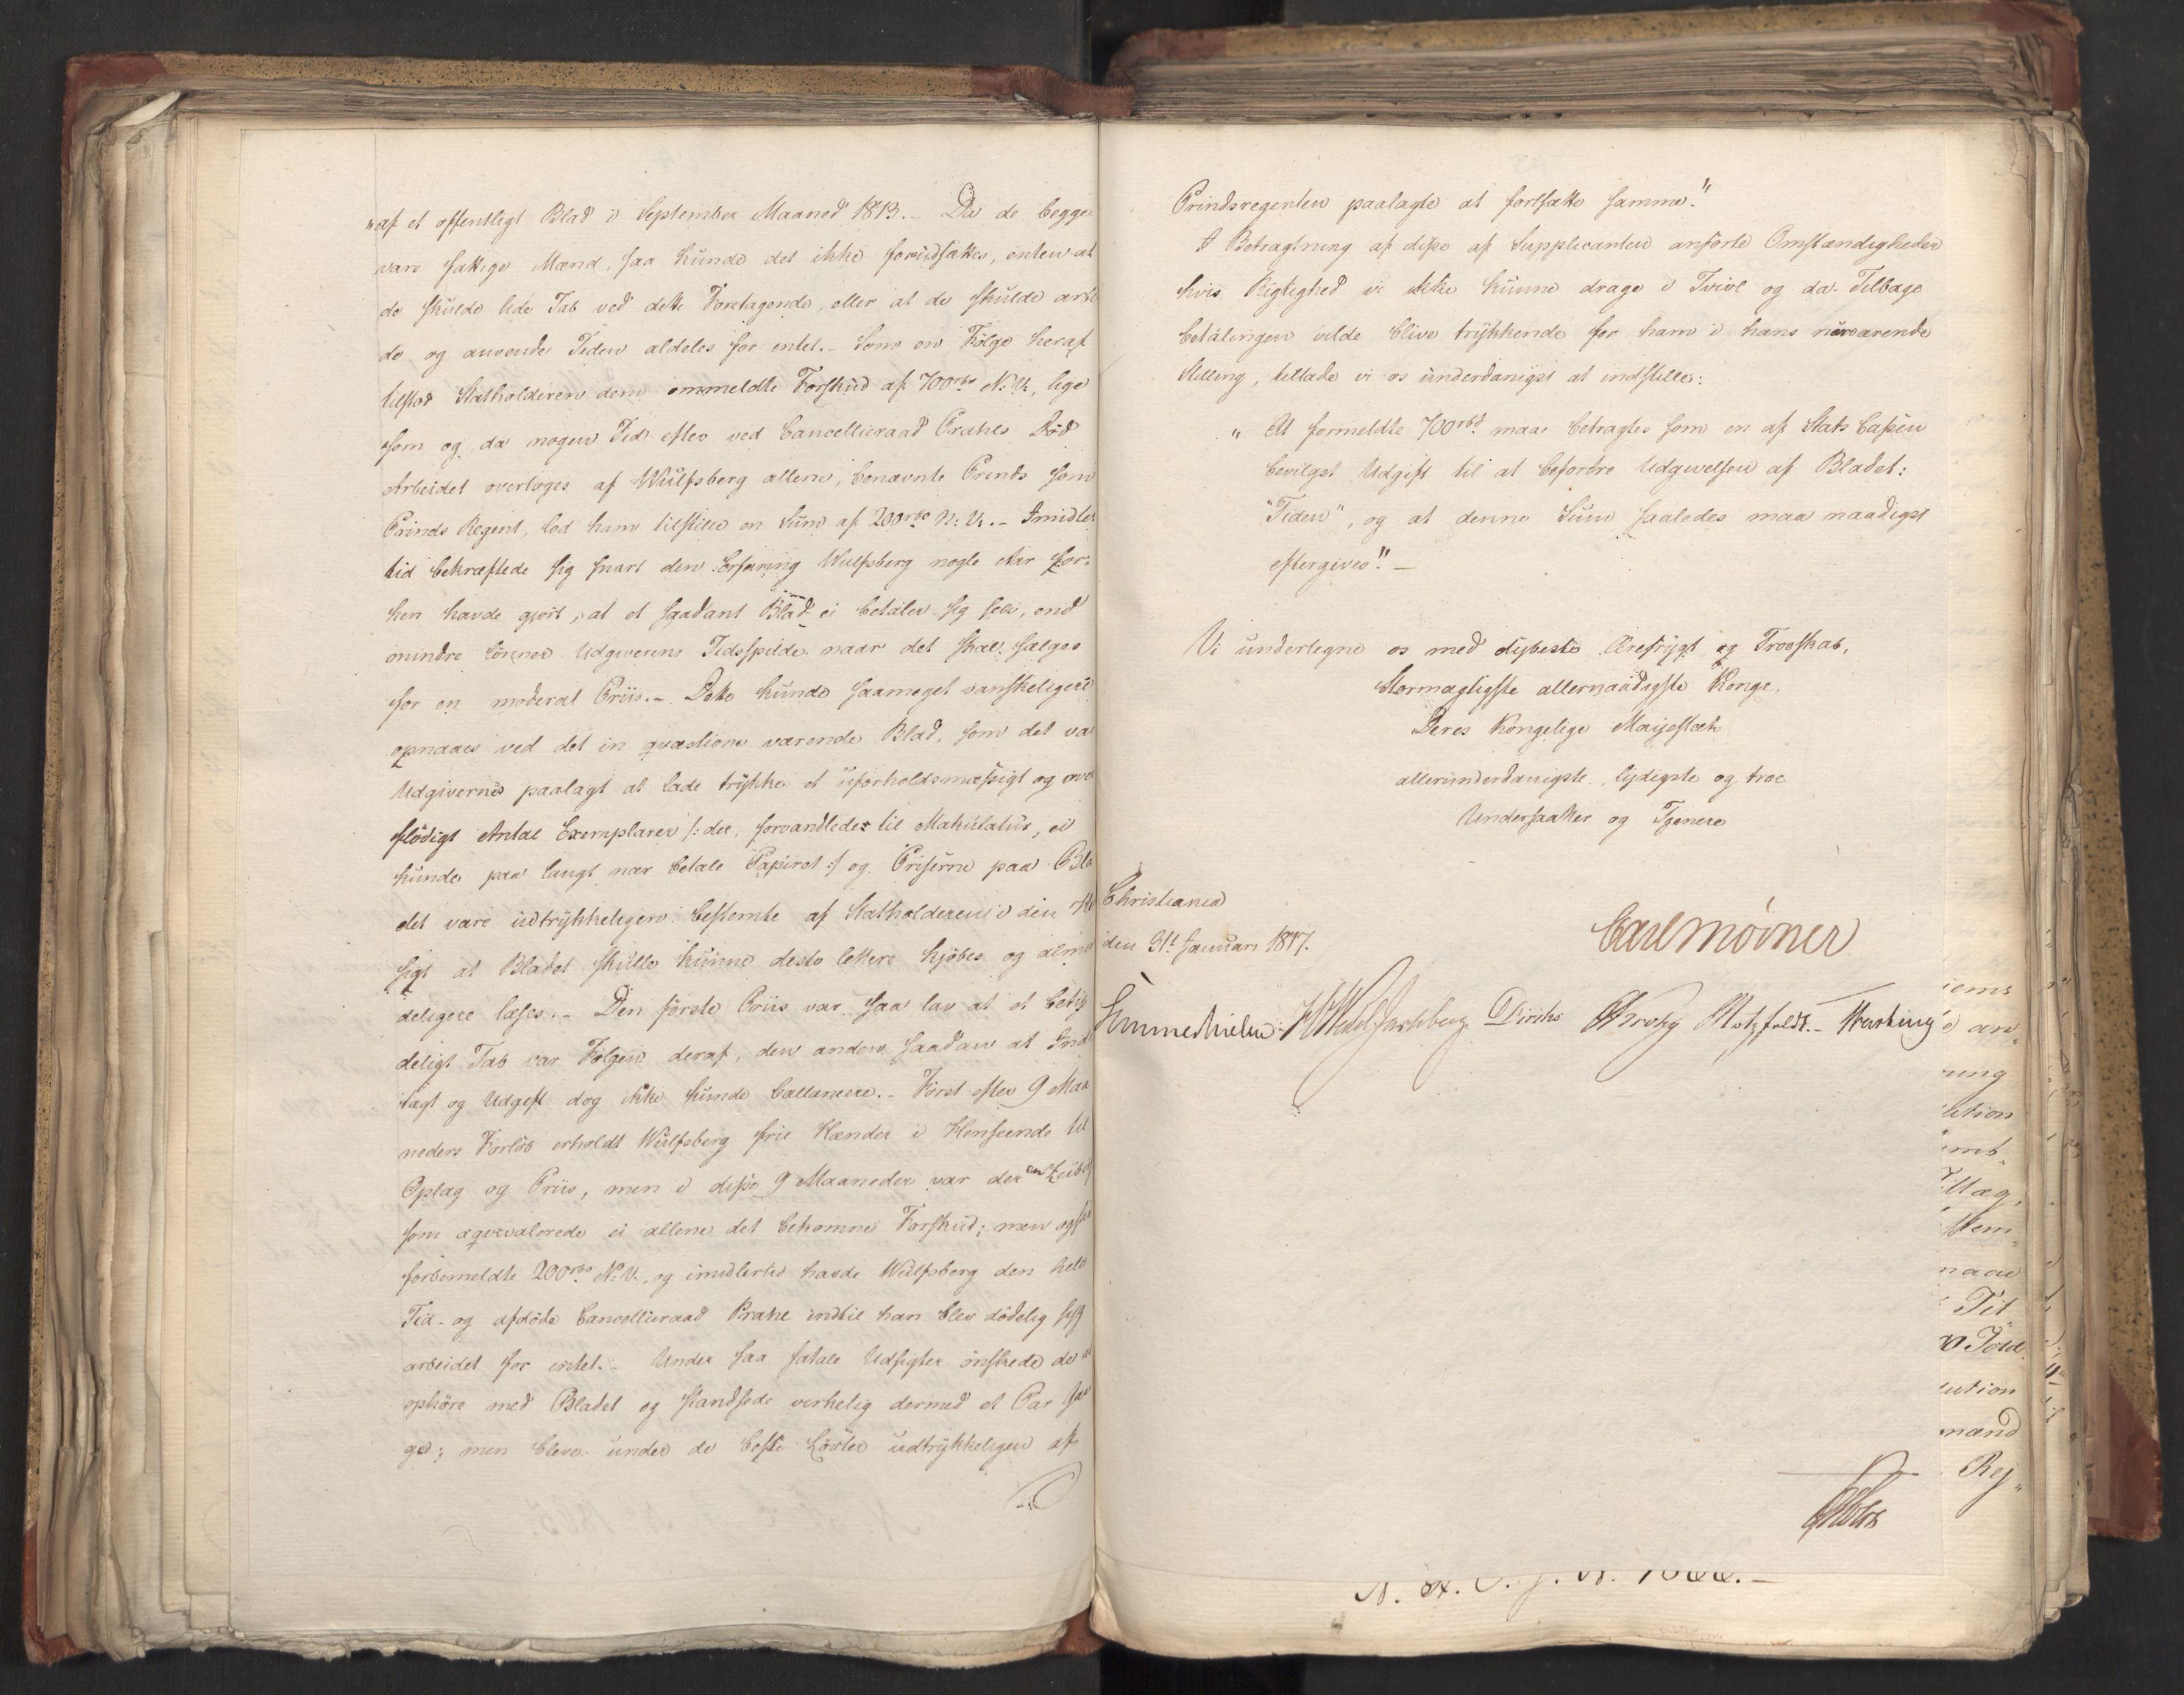 "af et offentligt Blad i September Maaned 1813. – Da de begge
vare fattige Mænd, saa kunde det ikke forudsættes, enten at
de skulde lide Tab ved dette Foretagende, eller at de skulde arbei
de og anvende Tiden aldeles for intet. – Som en Fölge heraf
tilstod Statholderen dem ommeldte Forskud af 700 rbd N.V., lige
som og da nogen Tid efter ved Cancellieraad Prahls Död
Arbeidet overtoges af Wulfsberg allene, benævnte Prinds som
Prinds Regent, lod ham tilstille en Sum af 200 rbd N.V. – Imidler
tid bekræftede sig snart den Erfaring Wulfsberg nogle Aar for:
hen havde gjort, at et saadant Blad ei betaler sig selv, end
mindre lönner Udgiverens Tidsspilde naar det skal sælges
for en moderat Priis. – Dette kunde saameget vanskeligere
opnaaes ved det in qvæstione værende Blad, som det var
Udgiverne paalagt at lade trykke et uforholdsmæssigt og over
flödigt Antal Exemplarer /: der, forvandlede til Makulatur, ei
kunde paa langt nær betale Papiret :/ og Priserne paa Bla
det vare udtrykkeligen bestemte af Statholderen i den He
sigt at Bladet skulle kunne desto lettere kjöbes og almin
deligere læses. – Den förste Priis var saa lav at et betyde
deligt Tab var Fölgen deraf, den anden saadan at Ind
tægt og Udgift dog ikke kunde ballancere. – Först efter 9 Maa
neders Forlöb erholdt Wulfsberg frie Hænder i Henseende til
Oplag og Priis, men i disse 9 Maaneder var der en
som æqvivalerede ei allene det bekomne Forskud; men ogsaa
forbemeldte 200 rbd N.V., og imidlertid havde Wulfsberg den hele
Tid – og afdöde Cancellieraad Prahl indtil han blev dödelig syg
arbeidet for intet. – Under saa fatale Udsigter önskede de at
ophöre med Bladet og standsede virkelig dermed et Par
ge; men bleve under de beste Löfter udtrykkeligen af
Prindsregenten paalagte at fortsætte samme."
I Betragtning af disse af Supplicanten anförte Omstændigheder
hvis Rigtighed vi ikke kunne drage i Tvivl og da Tilbage
betalingen vilde blive trykkende for ham i hans nuværende
Stilling, tillade vi os underdanigst at indstille:
" At formeldte 700 rbd maae betragtes som en af Stats Cassen
bevilget Udgift til at befordre Udgivelsen af Bladet:
"Tiden", og at denne Sum saaledes maa naadigst
eftergives". –
Vi undertegne os med dybeste Ærefrygt og Troeskab,
Stormægtigste allernaadigste Konge,
Deres Kongelige Majestæts
allerunderdanigste, lydigste og troe
Undersaatter og Tjenere
Christiania
den 31t Januari 1817.
Carl Mörner
Sommerhielm HWedel Jarlsberg Diriks Krohg Motzfeldt. –
ems
an„
ung
ution
emb„
Tillæg,
Stem„
naae
Tit
Told
lution
mænd
Rej„
N. St. C. J. N.